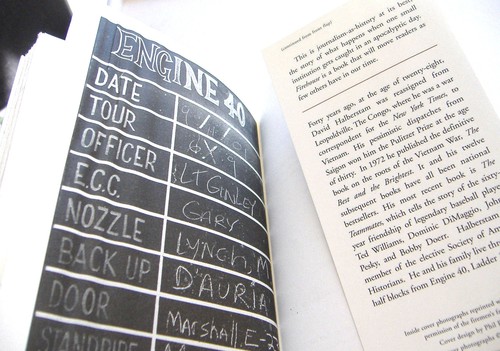 ENGINE 40
DATE 9/11/01
TOUR 6X9
OFFICER LT GINLEY
E.C.C. GARY
NOZZLE LYNCH, M
BACK UP D'AURIA
DOOR Marshall, E-23
STANDPIPE
(continued from front flap)
This is journalism-as-history at its best,
the story of what happens when one small
institution gets caught in an apocalyptic day.
Firehouse is a book that will move readers as
few others have in our time.
Forty years ago, at the age of twenty-eight,
David Halberstam was reassigned from
Leopoldville, The Congo, where he was a war
correspondent for the New York Times, to
Vietnam. His pessimistic dispatches from
Saigon won him the Pulitzer Prize at the age
of thirty. In 1972 he published the definitive
book on the roots of the Vietnam War, The
Best and the Brightest. It and his twelve
subsequent books have all been national
bestsellers. His most recent book is The
Teammates, which tells the story of the sixty-
year friendship of legendary baseball players
Ted Williams, Dominic DiMaggio, John
Pesky, and Bobby Doerr. Halberstam
member of the elective Society of Am
Historians. He and his family live thr
half blocks from Engine 40, Ladder
Inside cover photographs reprinted
permission of the firemen's
Cover design by Ph
photograph